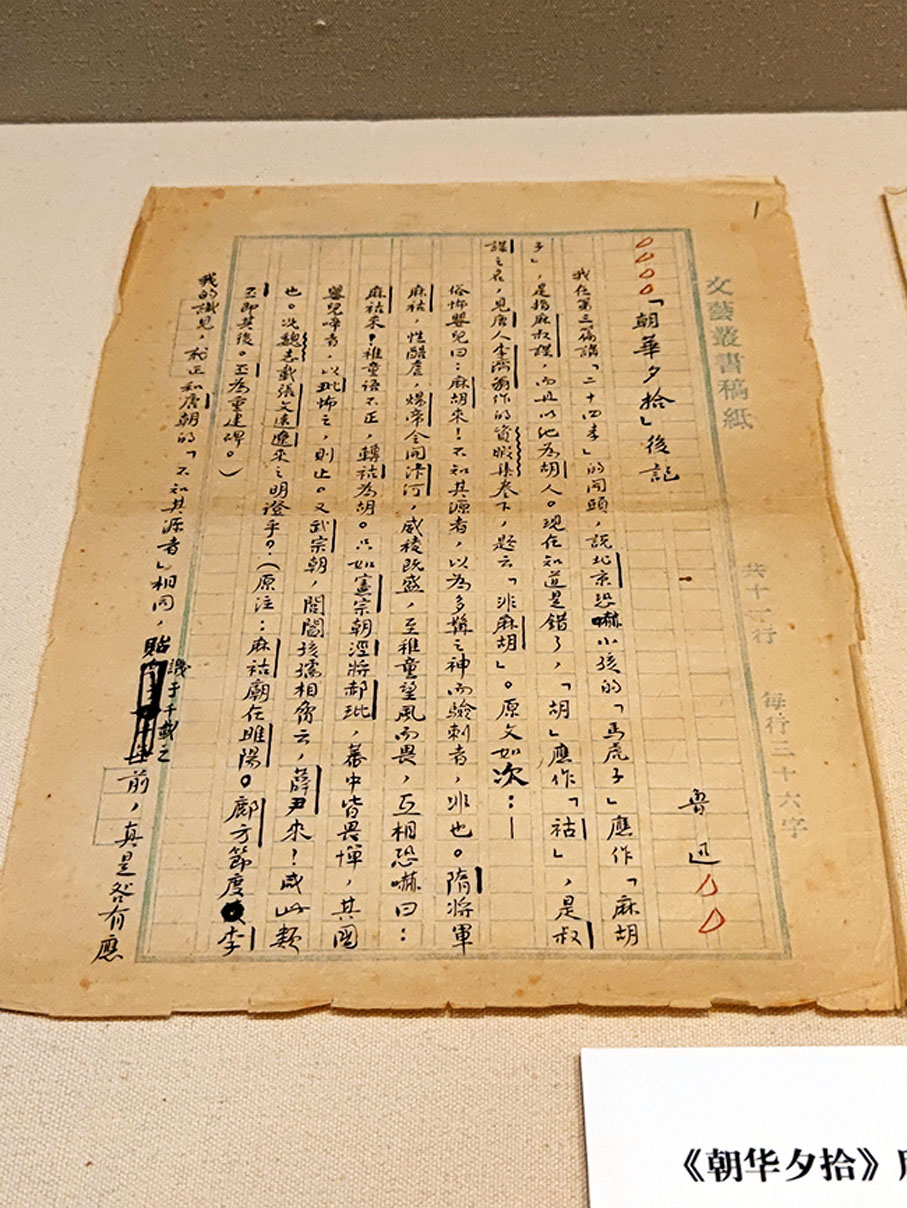 1
文藝叢書稿紙 共十一行 每行三十六字
「朝華夕拾」後記 魯迅
我在第三篇講「二十四孝」的開頭，說北京恐嚇小孩的「馬虎子」應作「麻胡
子」，是指麻叔謀，而且以他為胡人。現在知道是錯了，「胡」應作「祜」，是叔
謀之名，見唐人李濟翁作的資暇集卷下，題云「非麻胡」。原文如次：—
俗怖嬰兒曰：麻胡來！不知其源者，以為多髯之神而驗刺者，非也。隋將軍
麻祜，性酷虐，煬帝令開汴河，威稜既盛，至稚童望風而畏，互相恐嚇曰：
麻祜來！稚童語不正，轉祜為胡。只如憲宗朝涇將郝玼，蕃中皆畏憚，其國
嬰兒啼者，以玼怖之，則止。又武宗朝，閭閻孩孺相脅云，薛尹來！咸此類
也。況魏志載張文遠遼來之明證乎？（原注：麻祜廟在睢陽。鄜方節度李
丕即其後。丕為重建碑。）
我的識見，就正和唐朝的「不知其源者」相同，貽譏于千載之前，真是咎有應
《朝华夕拾》